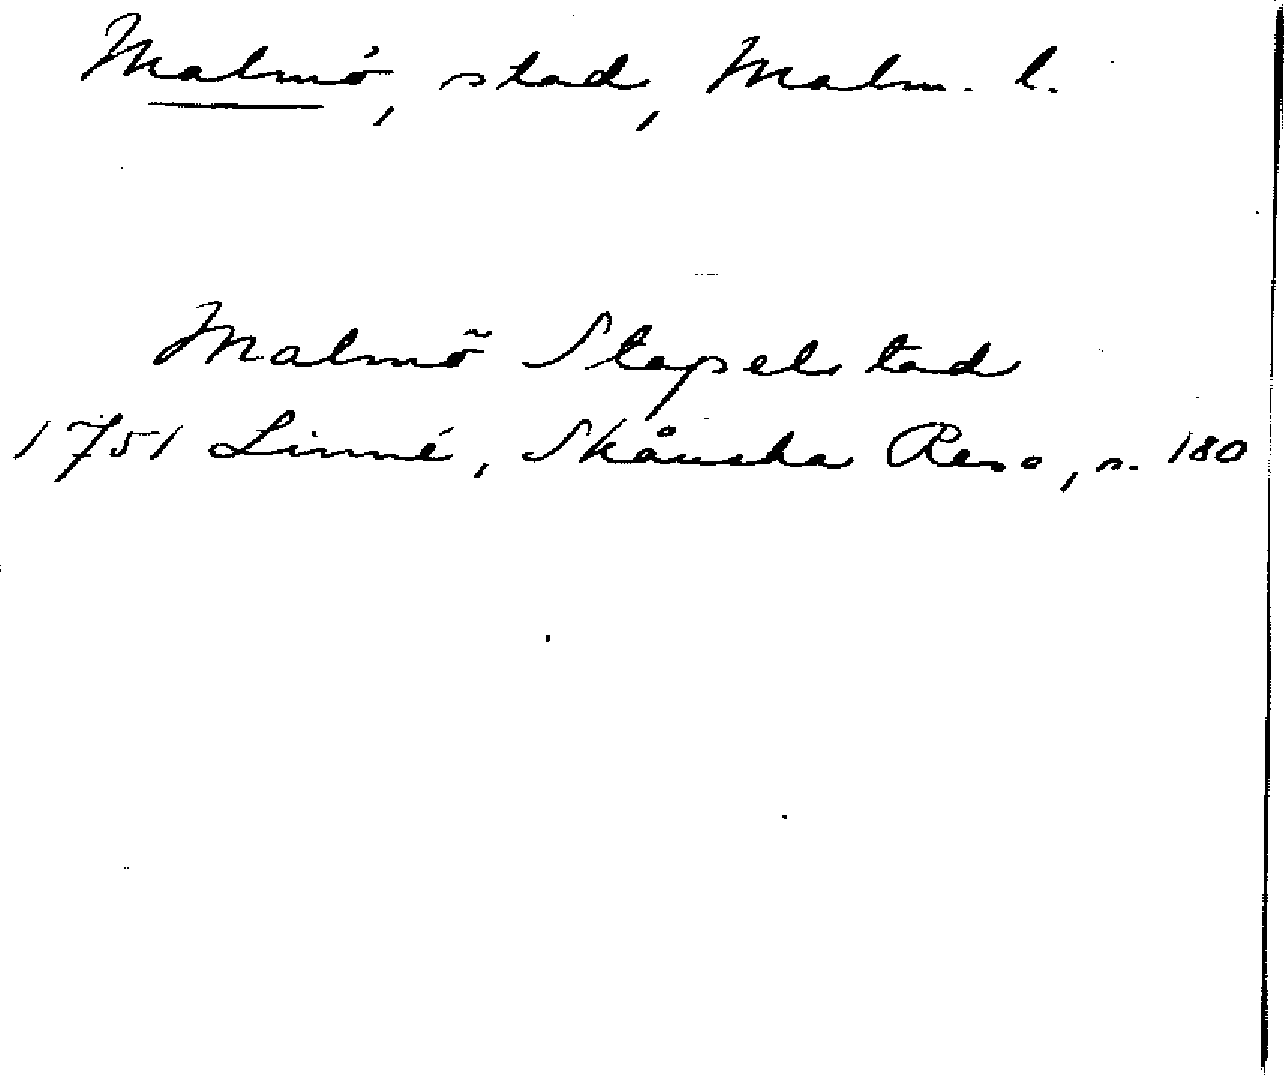 Malmö, stad, Malm. l.
Malmö Stapelstad
1751 Linné, Skånska Resa, s. 180